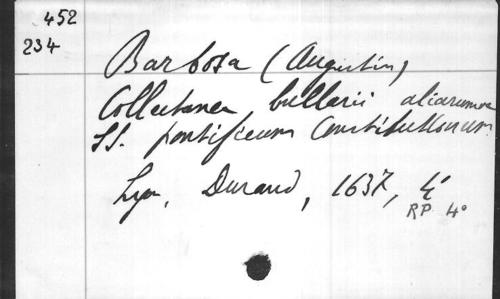 452
234
Barbosa (Augustin)
Collectanea bullarii aliarumve
SS. pontificum Constitutionum.
Lyon, Durand, 1637, 4°
RP 4°